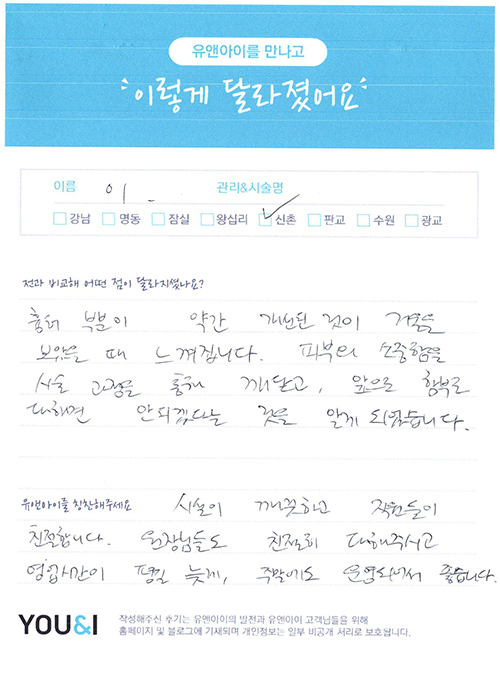 유앤아이를 만나고
이렇게 달라졌어요
이름 이 - 관리&시술명
강남 명동 잠실 왕십리 신촌 판교 수원 광교
전과 비교해 어떤 점이 달라지셨나요?
흉터 부분이 약간 개선된 것이 거울을
보았을 때 느껴집니다. 피부의 소중함을
시술 과정을 통해 깨닫고, 앞으로 함부로
대하면 안되겠다는 것을 알게 되었습니다.
유앤아이를 칭찬해주세요 시설이 깨끗하고 직원들이
친절합니다. 원장님들도 친절히 대해주시고
영업시간이 평일 늦게, 주말에도 운영되어서 좋습니다.
YOU&I 작성해주신 후기는 유앤아이의 발전과 유앤아이 고객님들을 위해
홈페이지 및 블로그에 기재되며 개인정보는 일부 비공개 처리로 보호됩니다.